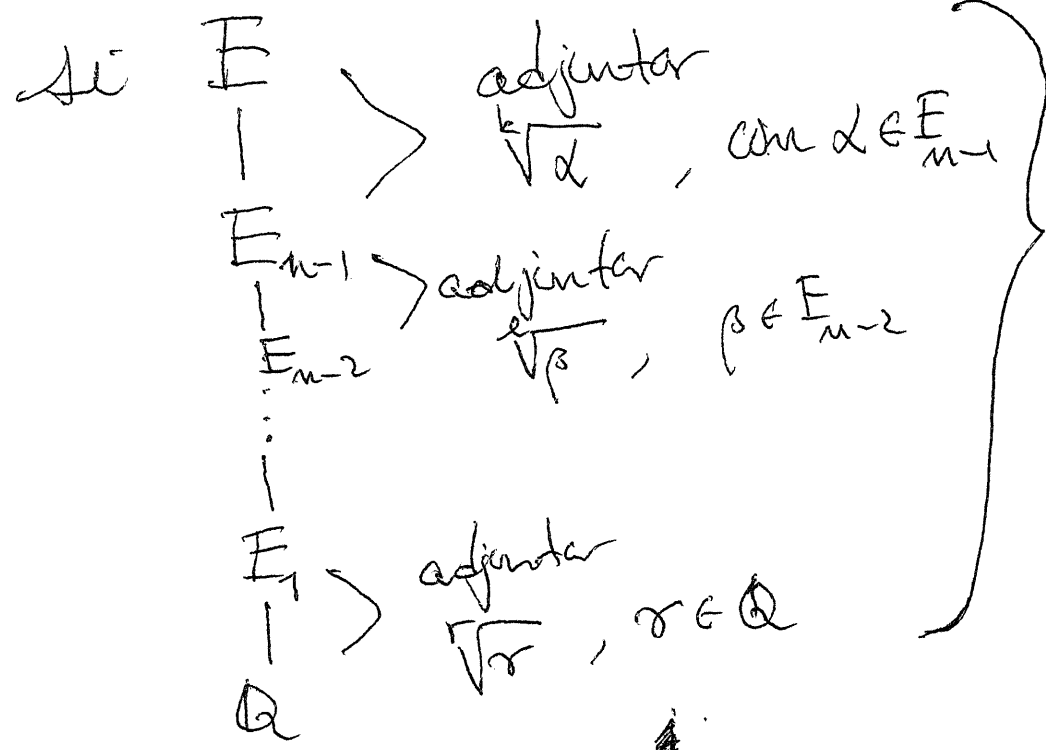 si E adjuntar
ᵏ√α , con α ∈ Eₙ₋₁
Eₙ₋₁ adjuntar
ˡ√β , β ∈ Eₙ₋₂
Eₙ₋₂
⋮
E₁ adjuntar
ʳ√γ , γ ∈ Q
Q